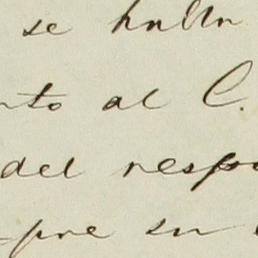 se halla
nto al C.
del resp
pre su